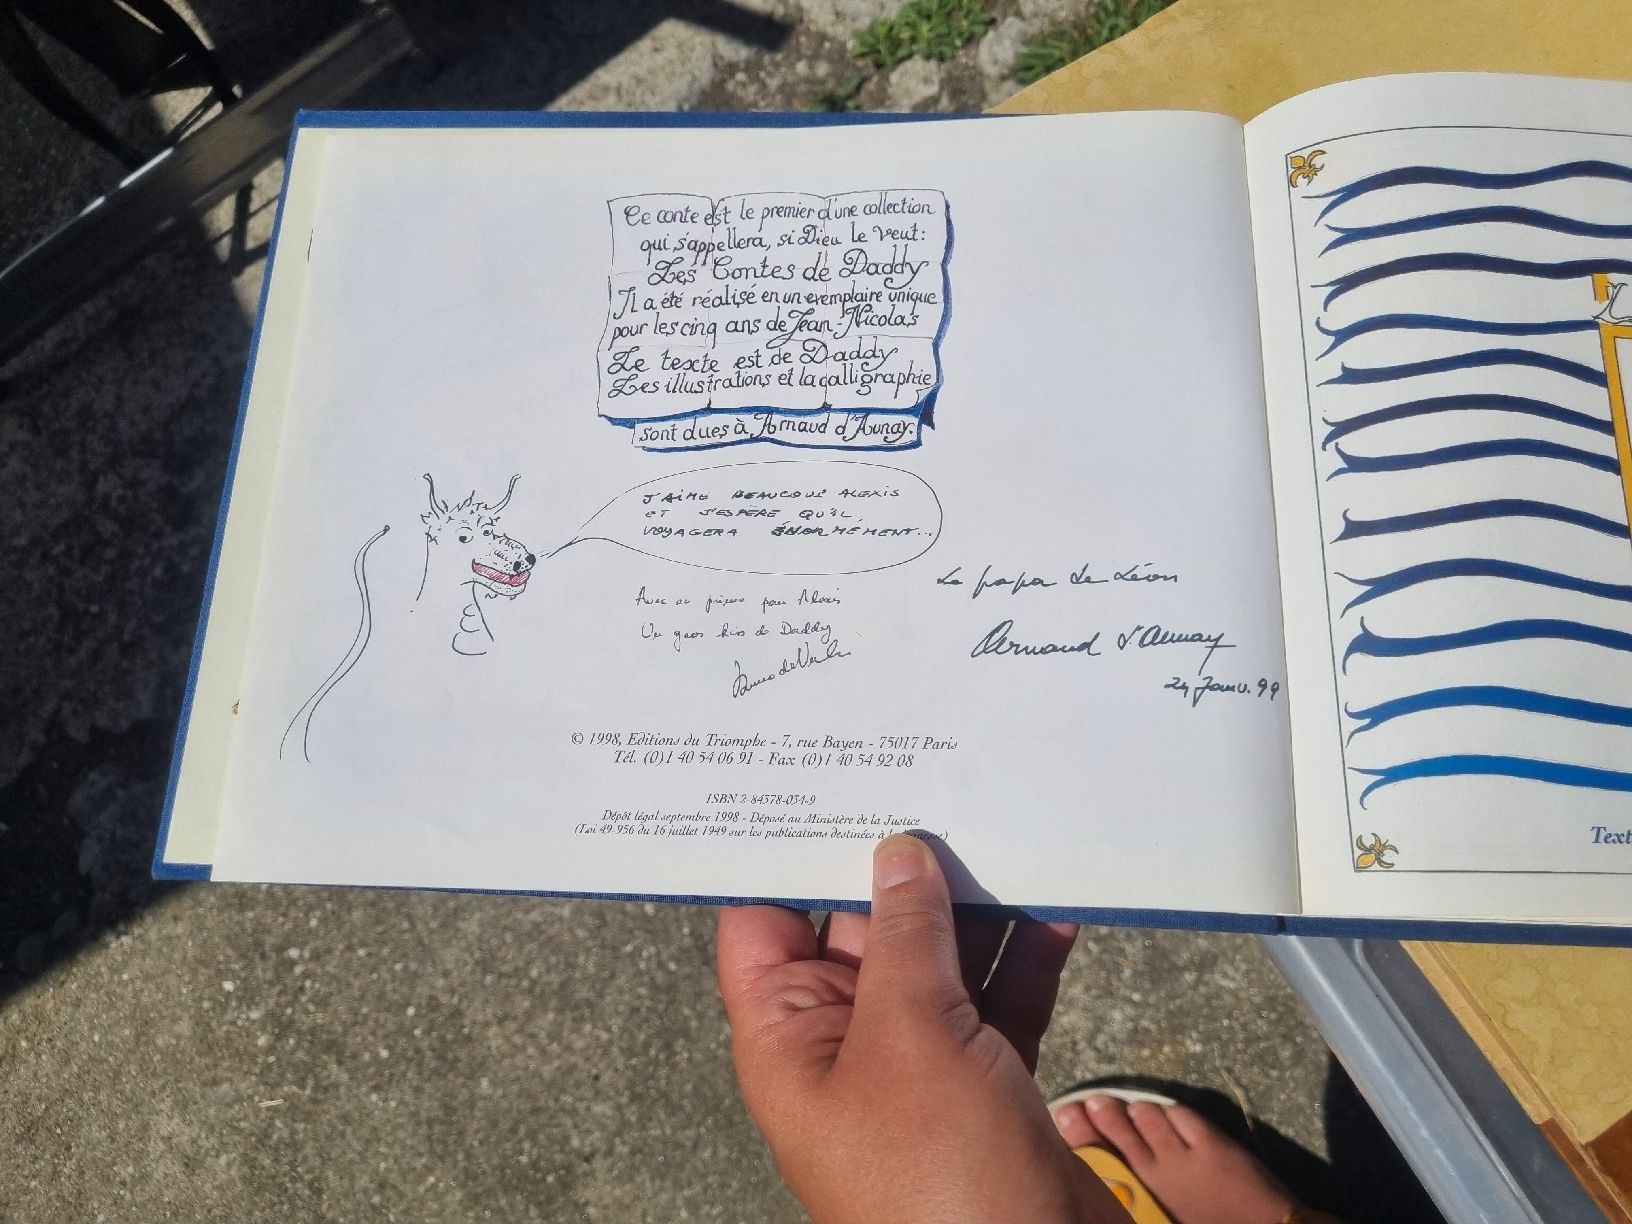 Ce conte est le premier d'une collection
qui s'appellera, si Dieu le veut:
Les Contes de Daddy
Il a été réalisé en un exemplaire unique
pour les cinq ans de Jean-Nicolas
Le texte est de Daddy
Les illustrations et la calligraphie
sont dues à Arnaud d'Aunay.
J'AIME BEAUCOUP ALEXIS
ET J'ESPÈRE QU'IL
VOYAGERA ÉNORMÉMENT...
Avec une prière pour Alexis
Un gros bise de Daddy
Le papa de Léon
Arnaud d'Aunay
24 Janv. 99
© 1998, Editions du Triomphe - 7, rue Bayen - 75017 Paris
Tél. (0)1 40 54 06 91 - Fax (0)1 40 54 92 08
ISBN 2-84378-034-9
Dépôt légal septembre 1998 - Déposé au Ministère de la Justice
(Loi 49.956 du 16 juillet 1949 sur les publications destinées à la jeunesse)
Text